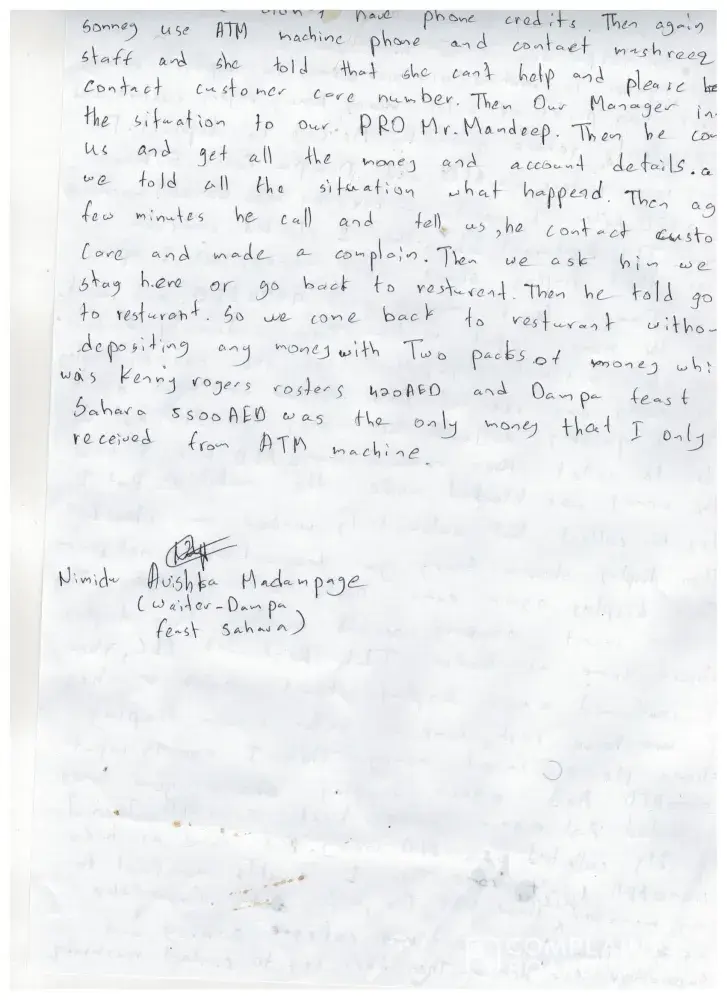 have phone credits. Then again
Sonney use ATM machine phone and contact mashreeq
staff and she told that she can't help and please
Contact customer care number. Then Our Manager in
the situation to our PRO Mr. Mandeep. Then he con
us and get all the money and account details. a
we told all the situation what happend. Then ag
few minutes he call and tell us, he contact custo
Care and made a complain. Then we ask him we
stay here or go back to resturent. Then he told go
to resturant. So we come back to resturant witho-
depositing any money with Two packs of money whi
was Kenny rogers rosters 420AED and Dampa feast
Sahara 5500AED was the only money that I only
received from ATM machine.
Nimidu Avishka Madampage
(waiter-Dampa
feast Sahara)